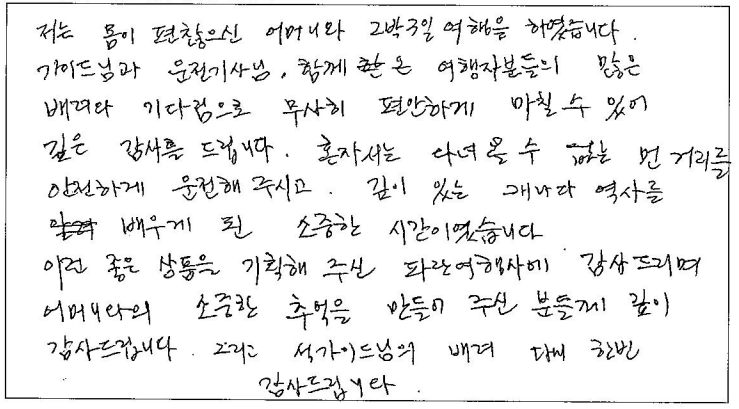 저는 몸이 편찮으신 어머니와 2박3일 여행을 하였습니다.
가이드님과 운전기사님, 함께 온 여행자분들의 많은
배려와 기다림으로 무사히 편안하게 마칠 수 있어
깊은 감사를 드립니다. 혼자서는 다녀올 수 없는 먼 거리를
안전하게 운전해 주시고. 깊이 있는 캐나다 역사를
배우게 된 소중한 시간이였습니다
이런 좋은 상품을 기획해 주신 파란여행사에 감사드리며
어머니와의 소중한 추억을 만들어 주신 분들께 깊이
감사드립니다. 그리고 석가이드님의 배려 다시 한번
감사드립니다.